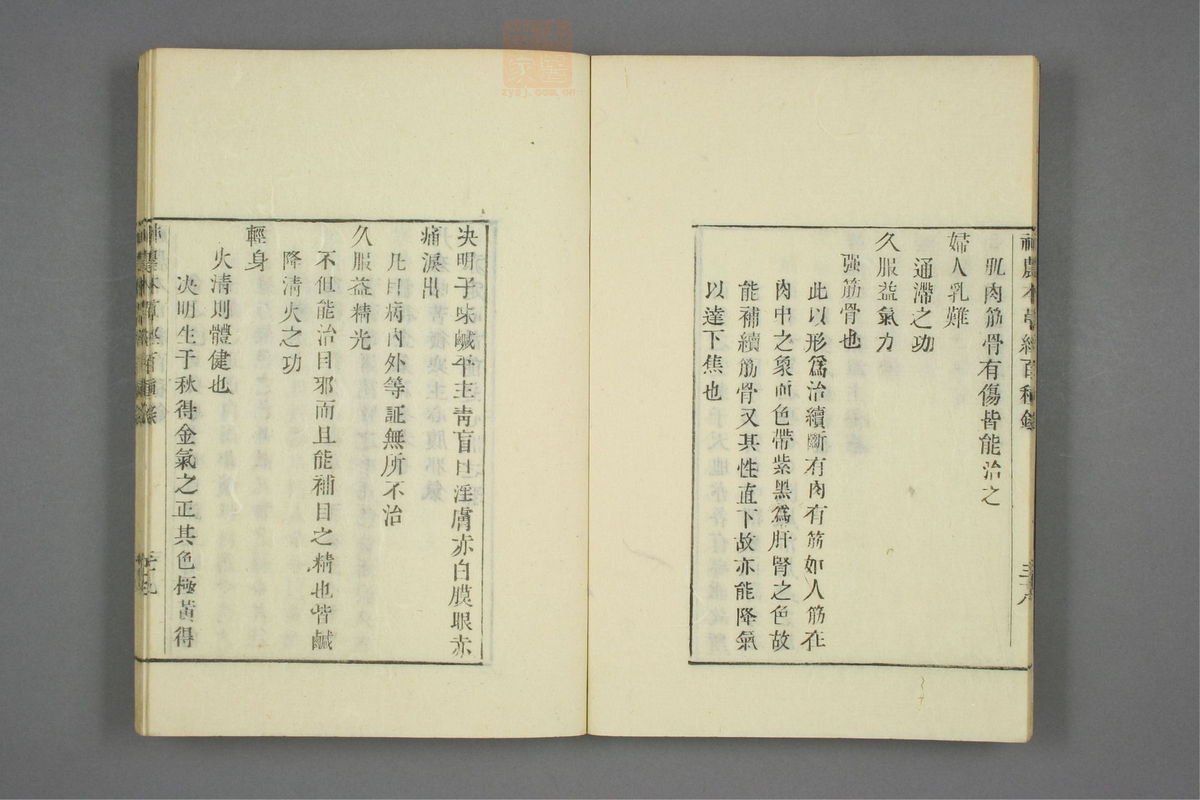 神農本草經百種錄
肌肉筋骨有傷皆能治之
婦人乳難
通滯之功
久服益氣力
强筋骨也
此以形爲治續斷有肉有筋如人筋在
肉中之象而色帶紫黑爲肝腎之色故
能補續筋骨又其性直下故亦能降氣
以達下焦也
三十八
决明子味鹹平主靑盲目淫膚赤白膜眼赤
痛淚出
凡目病內外等証無所不治
久服益精光
不但能治目邪而且能補目之精也皆鹹
降淸火之功
輕身
火淸則體健也
决明生于秋得金氣之正其色極黃得
神農本草經百種錄
家醫
zysj.com.cn